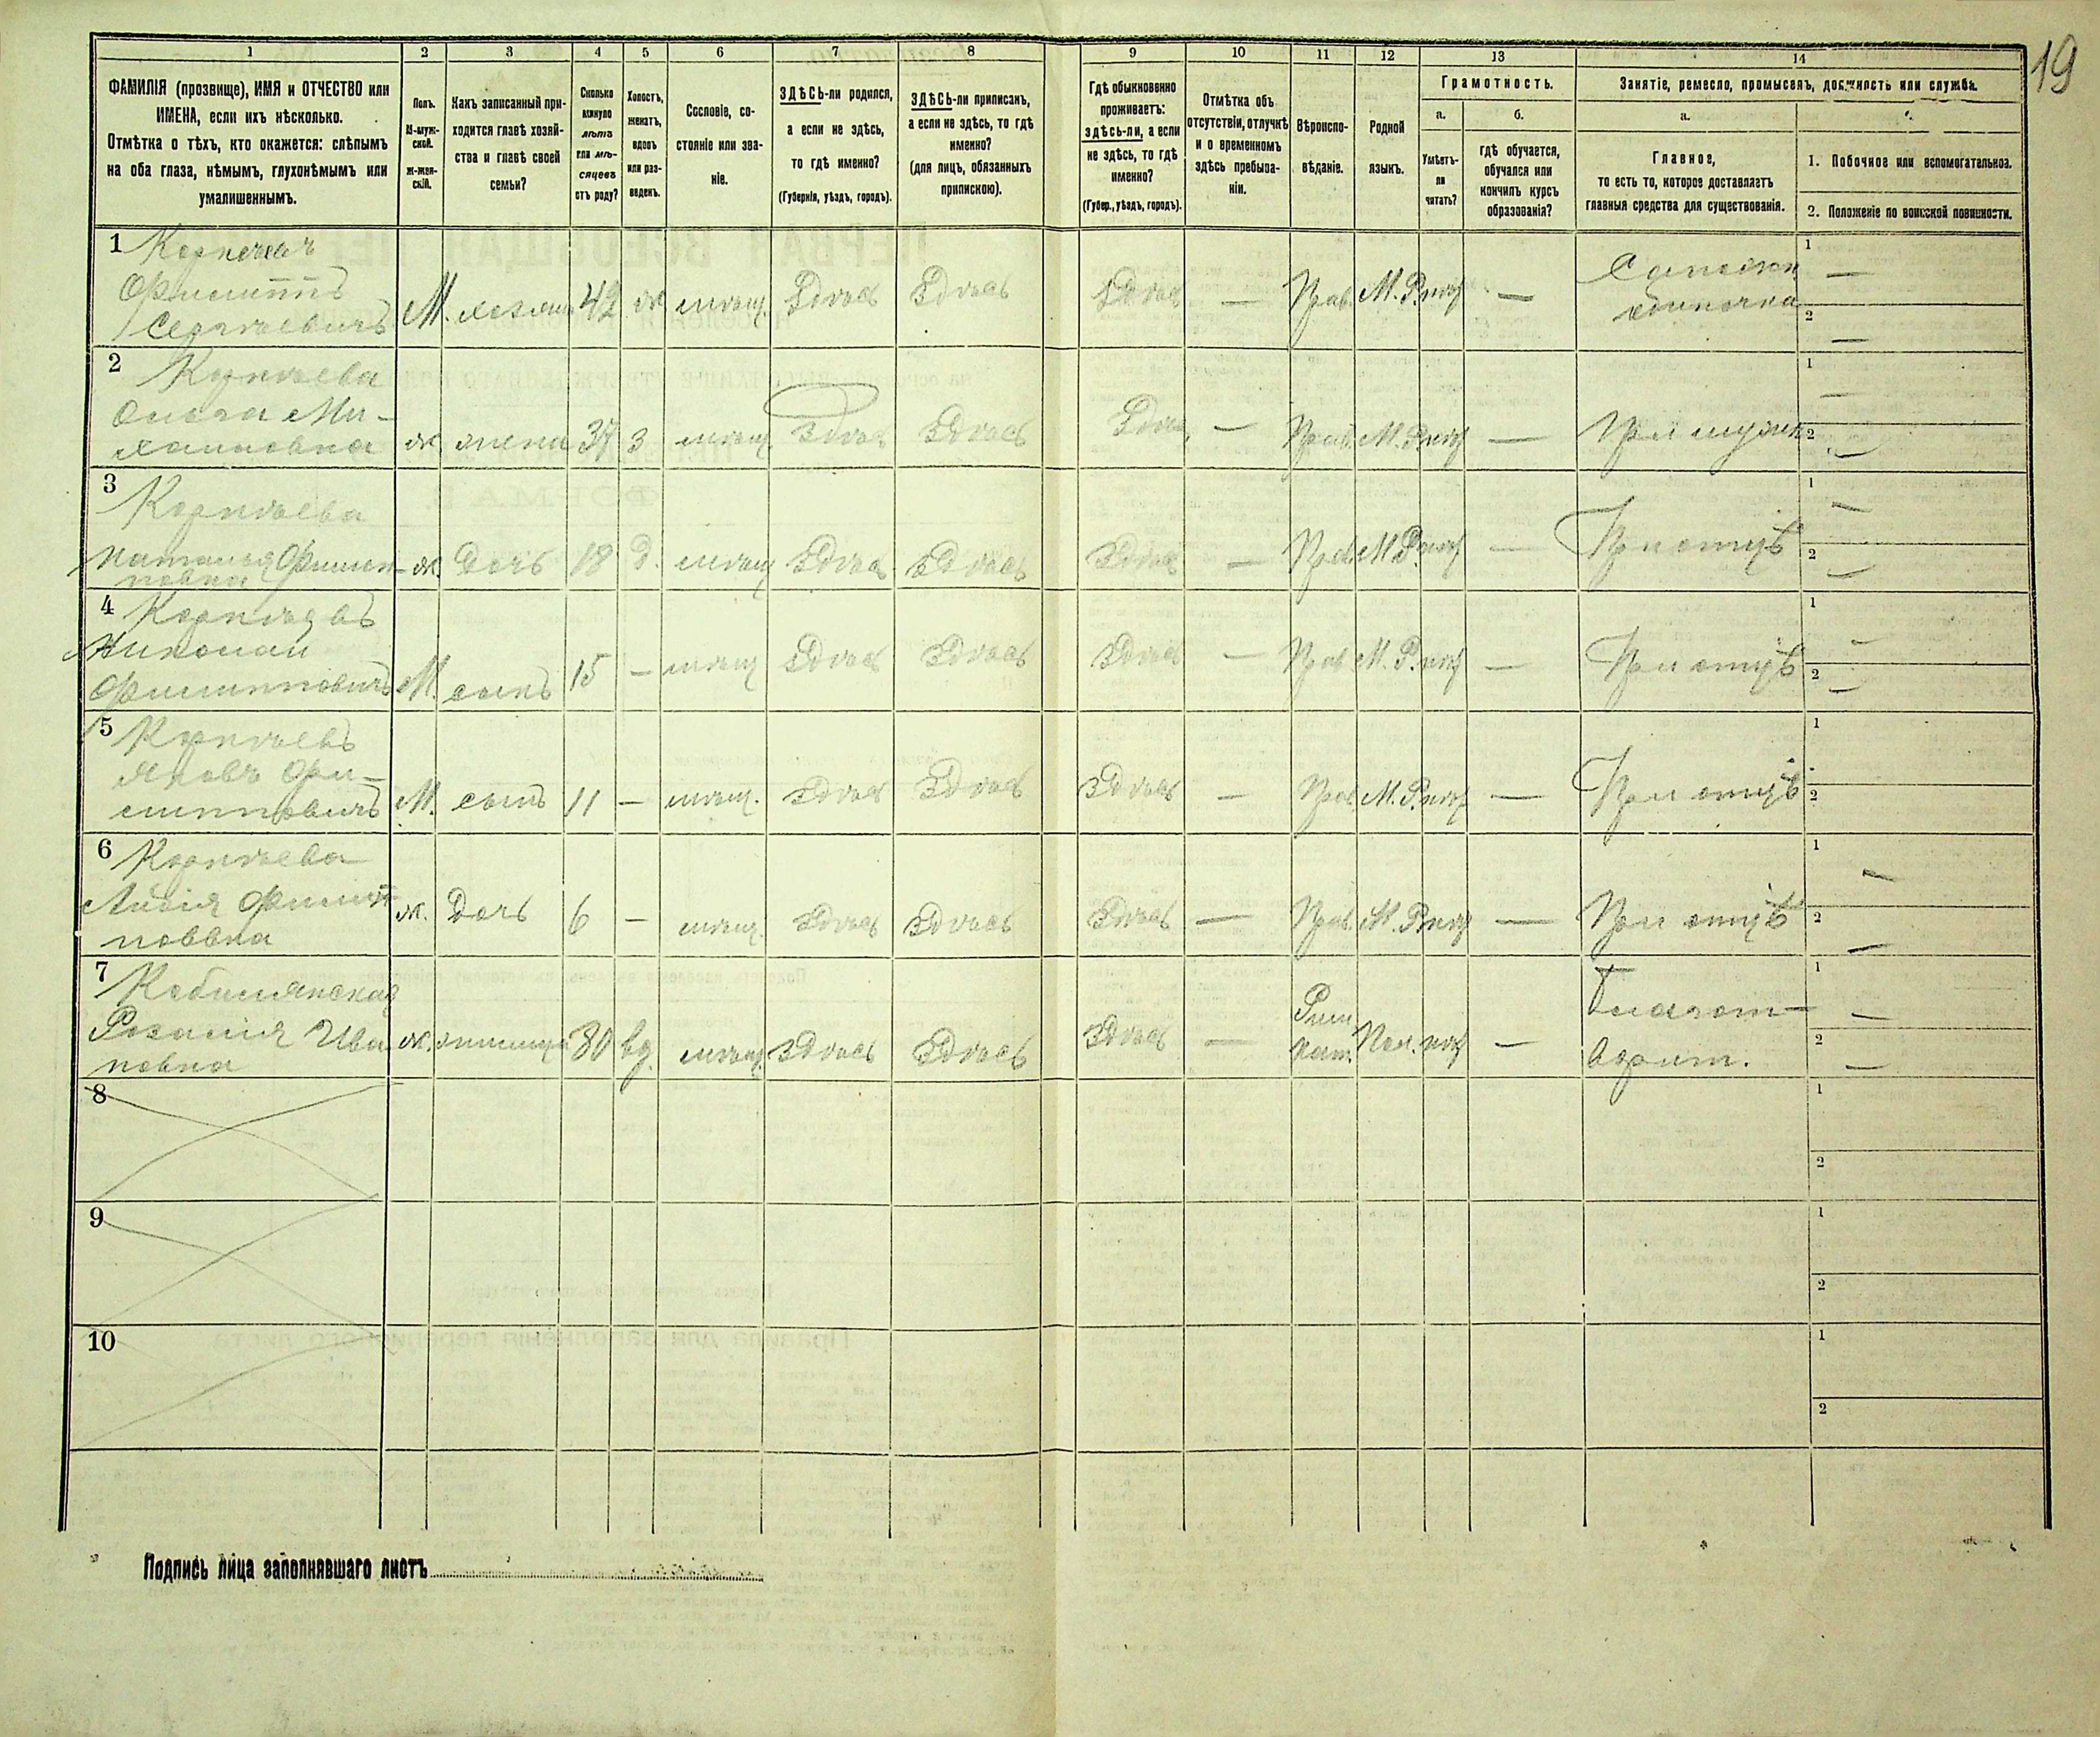 19
1 2 3 4 5 6 7 8 9 10 11 12 13 14
ФАМИЛІЯ (прозвище), ИМЯ и ОТЧЕСТВО или
ИМЕНА, если ихъ нѣсколько.
Отмѣтка о тѣхъ, кто окажется: слѣпымъ
на оба глаза, нѣмымъ, глухонѣмымъ или
умалишеннымъ.
Полъ.
М-муж-
ской.
ж-жен-
скій.
Какъ записанный при-
ходится главѣ хозяй-
ства и главѣ своей
семьи?
Сколько
минуло
лѣтъ
или мѣ-
сяцевъ
отъ роду?
Холостъ,
женатъ,
вдовъ
или раз-
веденъ.
Сословіе, со-
стояніе или зва-
ніе.
ЗДѢСЬ-ли родился,
а если не здѣсь,
то гдѣ именно?
(Губернія, уѣздъ, городъ).
ЗДѢСЬ-ли приписанъ,
а если не здѣсь, то гдѣ
именно?
(для лицъ, обязанныхъ
припискою).
Гдѣ обыкновенно
проживаетъ:
здѣсь-ли, а если
не здѣсь, то гдѣ
именно?
(Губер., уѣздъ, городъ).
Отмѣтка объ
отсутствіи, отлучкѣ
и о временномъ
здѣсь пребыва-
ніи.
Вѣроиспо-
вѣданіе.
Родной
языкъ.
Грамотность.
а. б.
Умѣетъ-
ли
читать?
гдѣ обучается,
обучался или
кончилъ курсъ
образованія?
Занятіе, ремесло, промыселъ, должность или служба.
а.
Главное,
то есть то, которое доставляетъ
главныя средства для существованія.
1. Побочное или вспомогательное.
2. Положеніе по воинской повинности.
1
Филиппъ
Сергѣевичъ
М. хозяинъ 42 ж мѣщ. Здѣсь Здѣсь Здѣсь — Прав. М.Р. — 1 — 2 —
2
Ми-
хаиловна
ж. жена 37 З мѣщ. Здѣсь Здѣсь Здѣсь — Прав. М.Р. — При мужѣ 1 — 2 —
3 Корнѣева
Наталья Филип-
повна
ж. Дочь 18 Д. мѣщ Здѣсь Здѣсь Здѣсь — Прав М.Р. — При отцѣ 1 — 2 —
4 Корнѣевъ
Николай
Филипповичъ
М. сынъ 15 — мѣщ Здѣсь Здѣсь Здѣсь — Прав М.Р. — При отцѣ 1 — 2 —
5 Корнѣевъ
Яковъ Фи-
липповичъ
М. сынъ 11 — мѣщ. Здѣсь Здѣсь Здѣсь — Прав М.Р. — При отцѣ 1 2
6 Корнѣева
Филип
повна
ж. Дочь 6 — мѣщ. Здѣсь Здѣсь Здѣсь — Прав. М.Р. — При отцѣ 1 — 2 —
7
Розалія Ива
новна
ж. жилица 80 вд. мѣщ. Здѣсь Здѣсь Здѣсь — Рим.
Кат. Пол. — Благот-
ворит. 1 — 2 —
8 1 2
9 1 2
10 1 2
Подпись лица заполнявшаго листъ